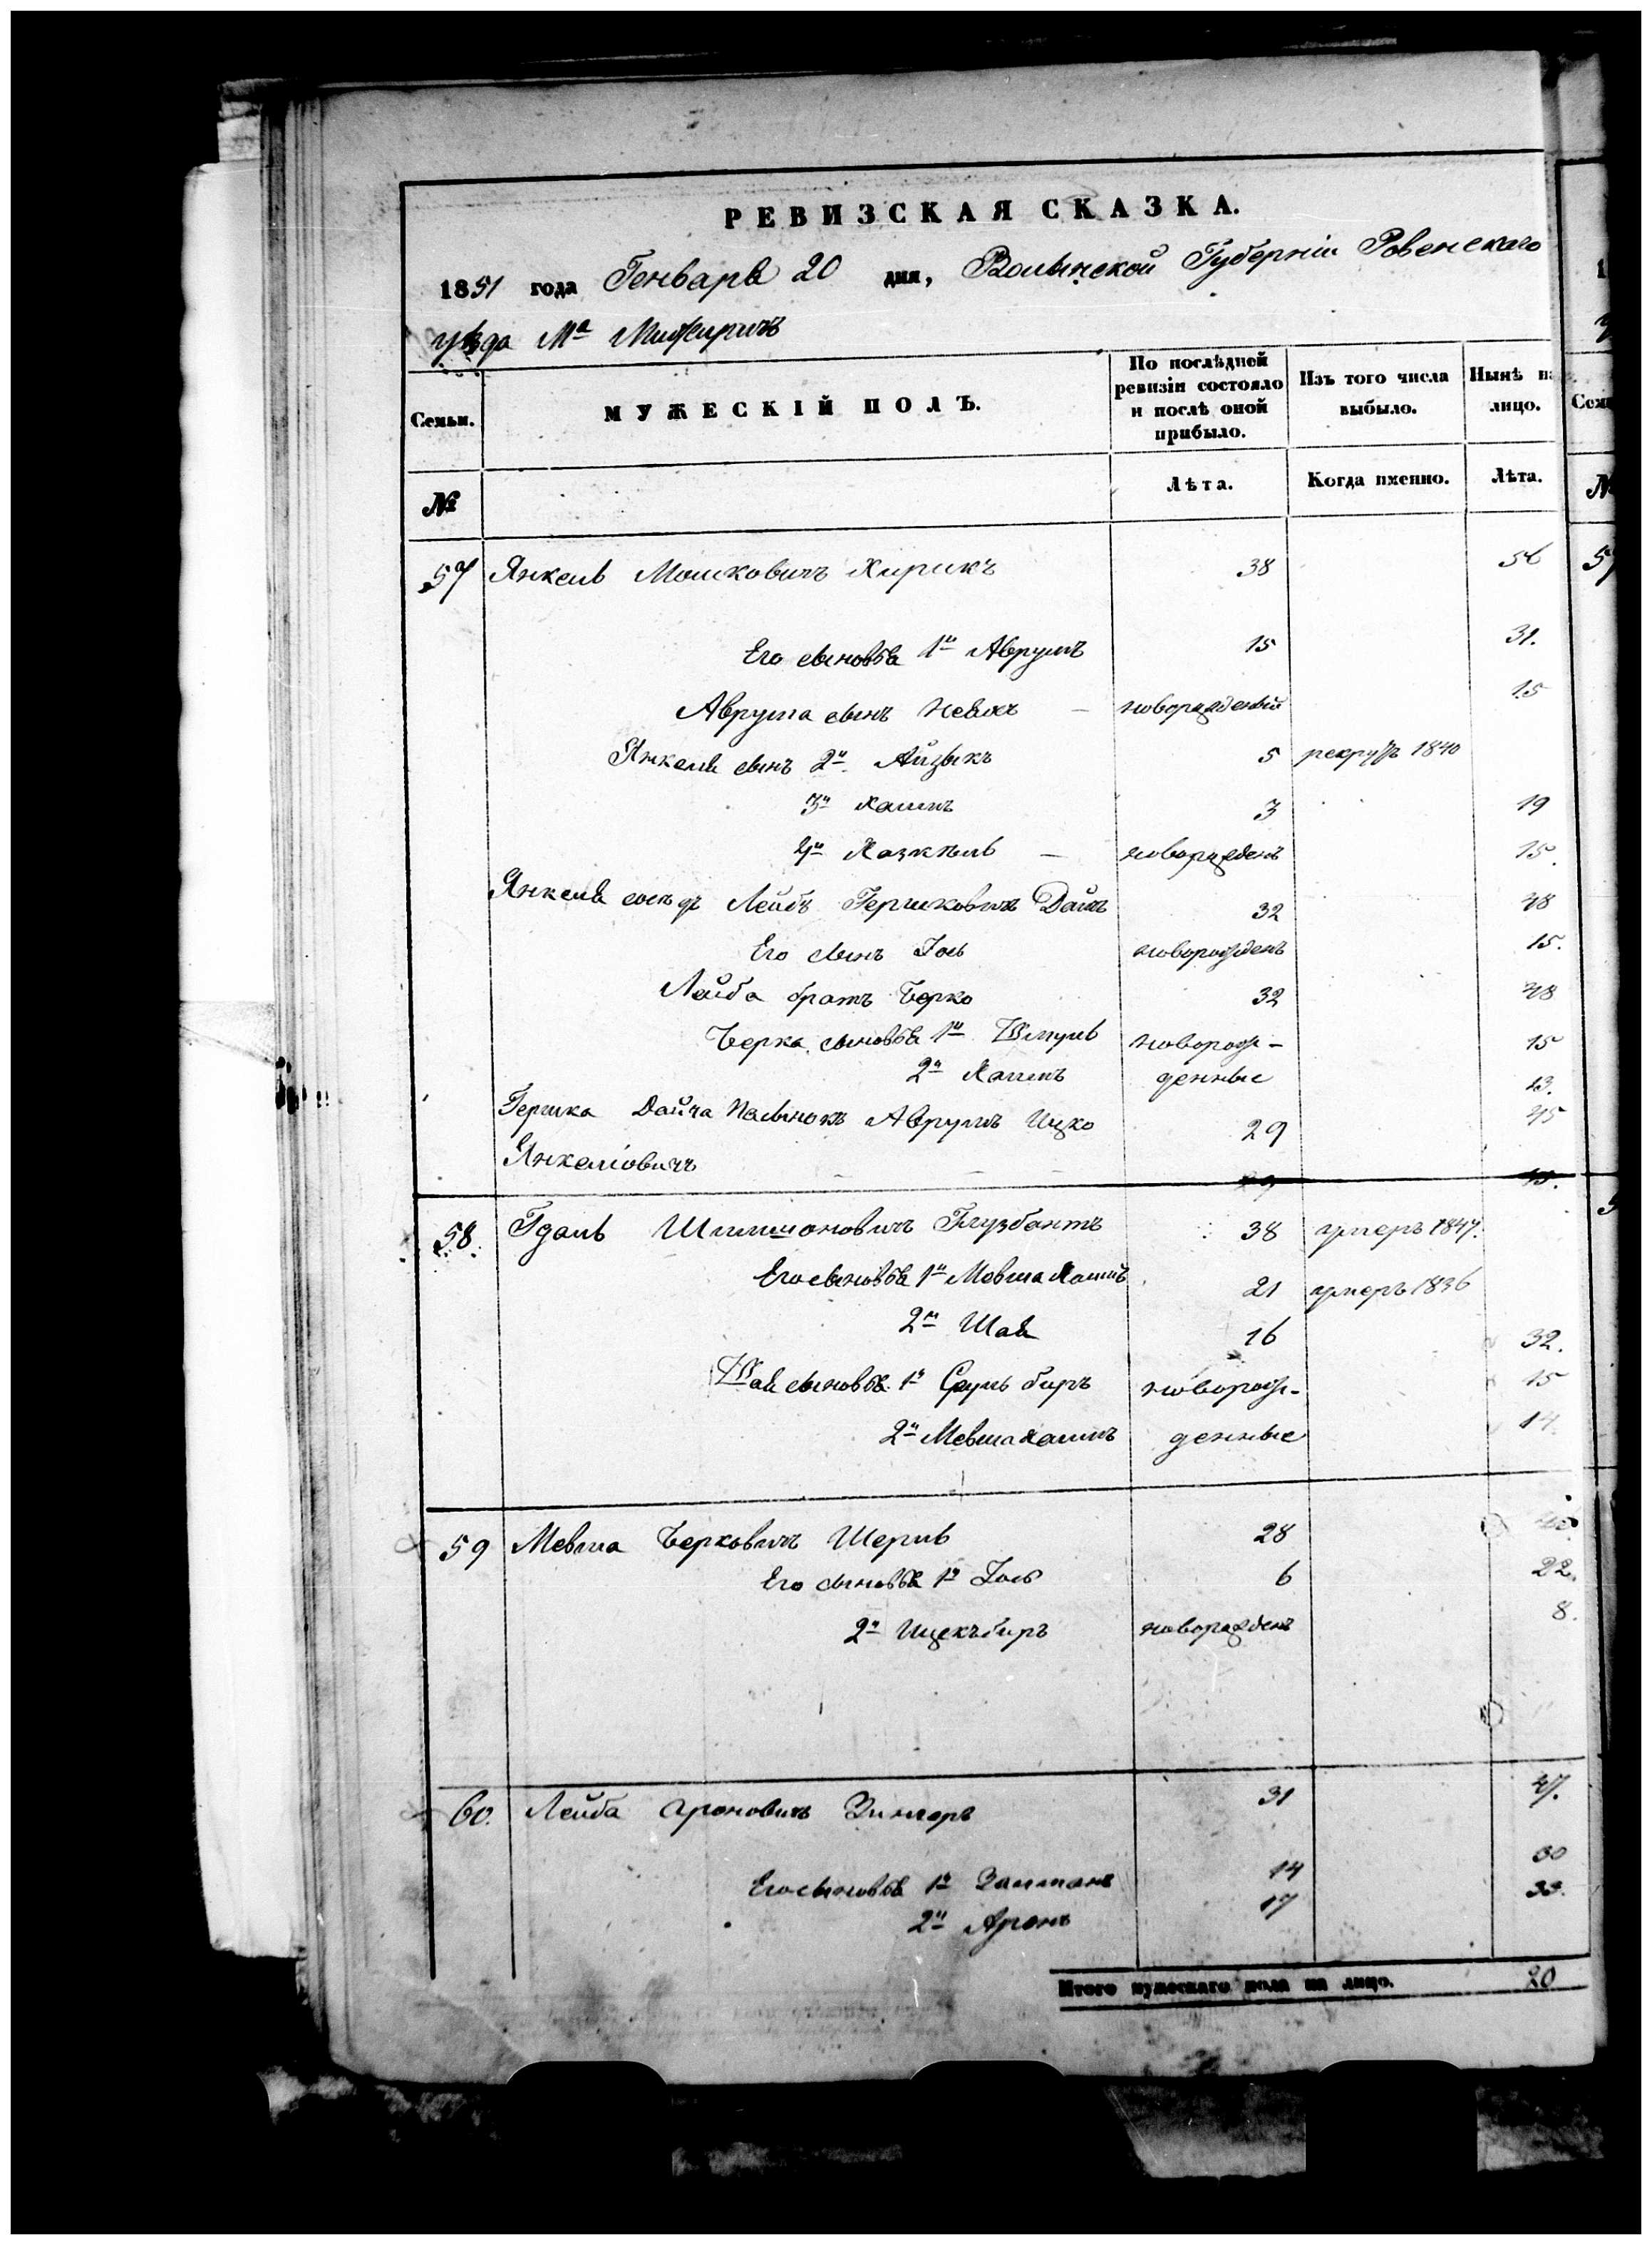 РЕВИЗСКАЯ СКАЗКА.
1851 года Генваря 20 дня, Волынской Губерніи Ровенскаго
уѣзда Мᵃ Межиричъ
Семьи. МУЖЕСКІЙ ПОЛЪ. По послѣдней ревизіи состояло и послѣ оной прибыло. Изъ того числа выбыло. Нынѣ на лицо.
№ Лѣта. Когда именно. Лѣта.
57 Янкель Мошковичъ Кирикъ 38 56
Его сыновья 1й Аврумъ 15 31.
Аврума сынъ Невахъ — новорожденный 15
Янкеля сынъ 2й Айзыкъ 5 рекрутъ 1840
3й Хаимъ 3 19
4й Хазкель — новорожденъ 15.
Янкеля сосѣдъ Лейбъ Гершковичъ Дайчъ 32 48
Его сынъ Іось новорожденъ 15.
Лейба братъ Берко 32 48
Берка сыновья 1й Шмуль новорож- 15
2й Хаимъ денные 13.
Гершка Дайча пасынокъ Аврумъ Ицко 29 45
Янкеліовичъ
58. Гдаль Шлимоновичъ Глузбантъ 38 умеръ 1847.
Его сыновья 1й Мевша Хаимъ 21 умеръ 1836
2й Шая 16 32.
Шаи сыновья 1й Сруль беръ новорож- 15
2й Мевша Хаимъ денные 14.
59 Мевша Берковичъ Шерль 28
Его сыновья 1й Іось 6 22.
2й Ицекъ беръ новорожденъ 8.
60. Лейба Ароновичъ Зингеръ 31 47.
Его сыновья 1й Залманъ 14 30
2й Аронъ 17 33.
Итого мужескаго пола на лицо. 20